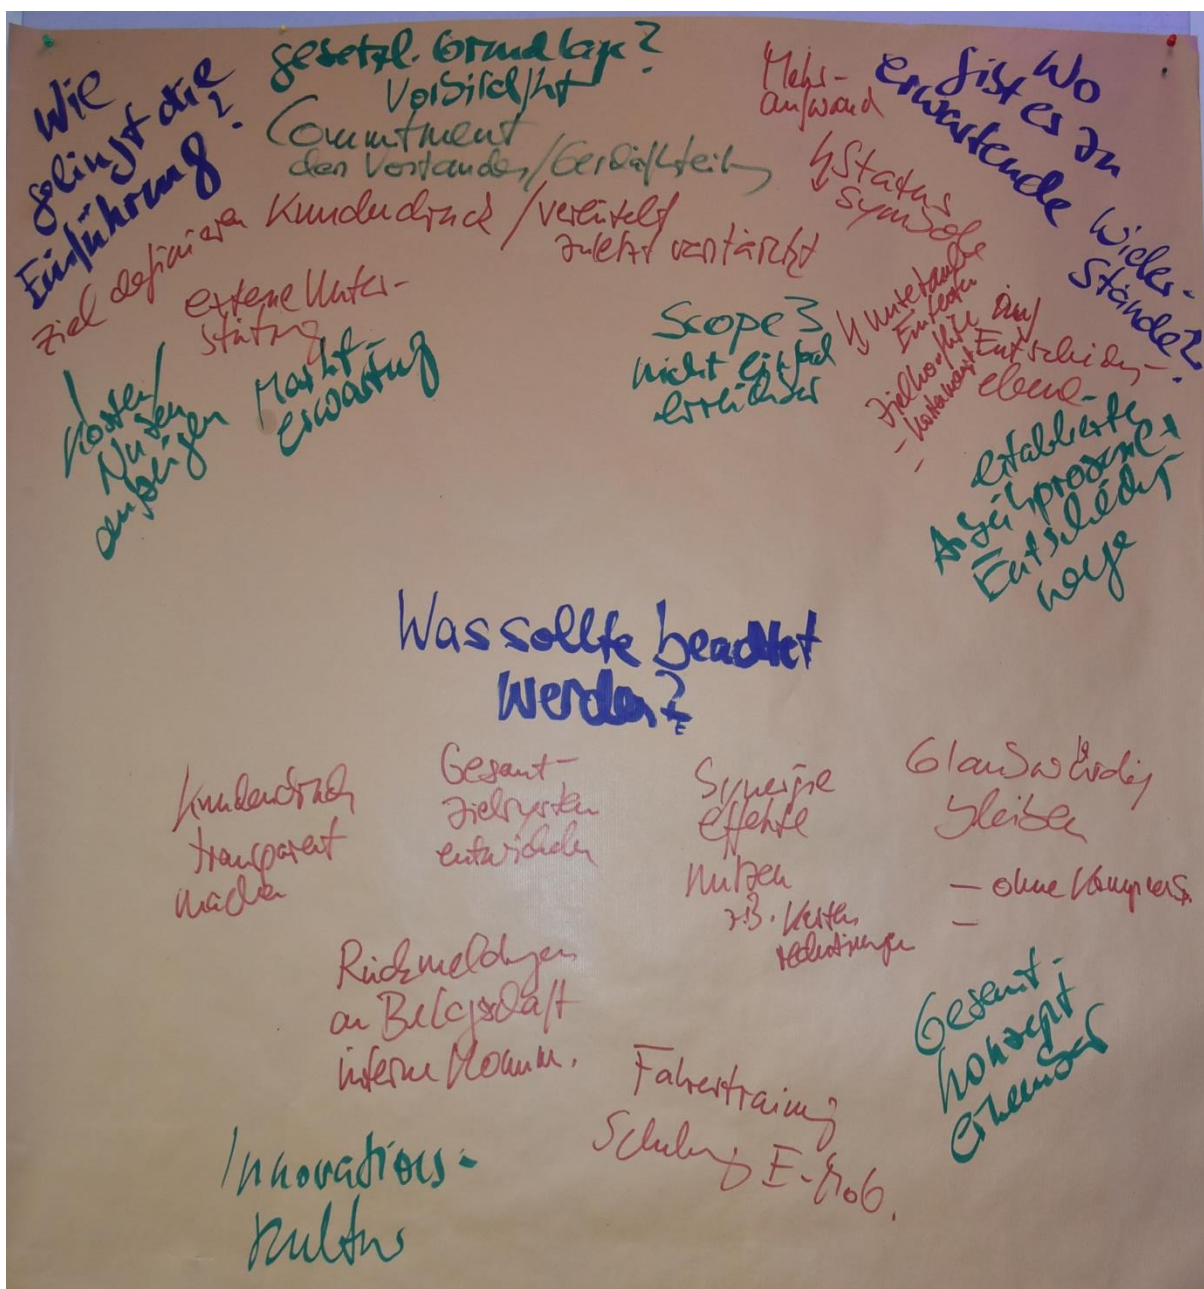 Wie
gelingt die
Einführung?
gesetzl. Grundlage?
Vorbildfkt
Commitment
des Vorstandes/Geschäftsleitg
Ziel definieren
Kundendruck / vereinzelt
zuletzt verstärkt
externe Unter-
stützung
Kosten/
Nutzen
aufzeigen
Markt-
erwartung
Scope 3
nicht einfach
erreichbar
Wo
ist es zu
erwartende
Wider-
stände?
Mehr-
aufwand
↳ Status
symbole
Zielkonflikte
Entscheidungs-
ebene
etablierte
Entscheidgs-
wege
Was sollte beachtet
werden?
Kundendruck
transparent
machen
Gesamt-
zielsystem
entwickeln
Synergie
effekte
nutzen
z.B. Kosten
reduzierungen
Glaubwürdig
bleiben
– ohne Kompromis.
–
Rückmeldungen
an Belegschaft
interne Komm.
Fahrertraining
Schulung E-Mob.
Gesamt-
konzept
erkennbar
Innovations-
kultur